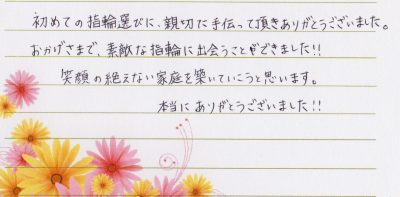 初めての指輪選びに、親切に手伝って頂きありがとうございました。
おかげさまで、素敵な指輪に出会うことができました!!
笑顔の絶えない家庭を築いていこうと思います。
本当にありがとうございました!!